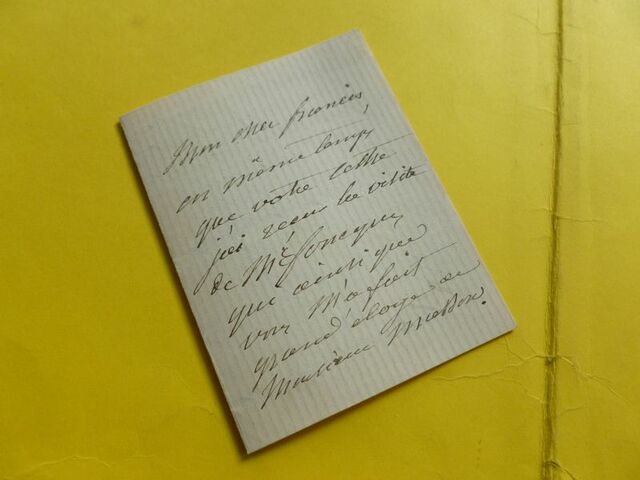 Mon cher francis
en même temps,
que votre lettre
j'ai recu la visite
de Mr
que ainsi que
vous m'a fait
grand éloge de
Monsieur Masson.